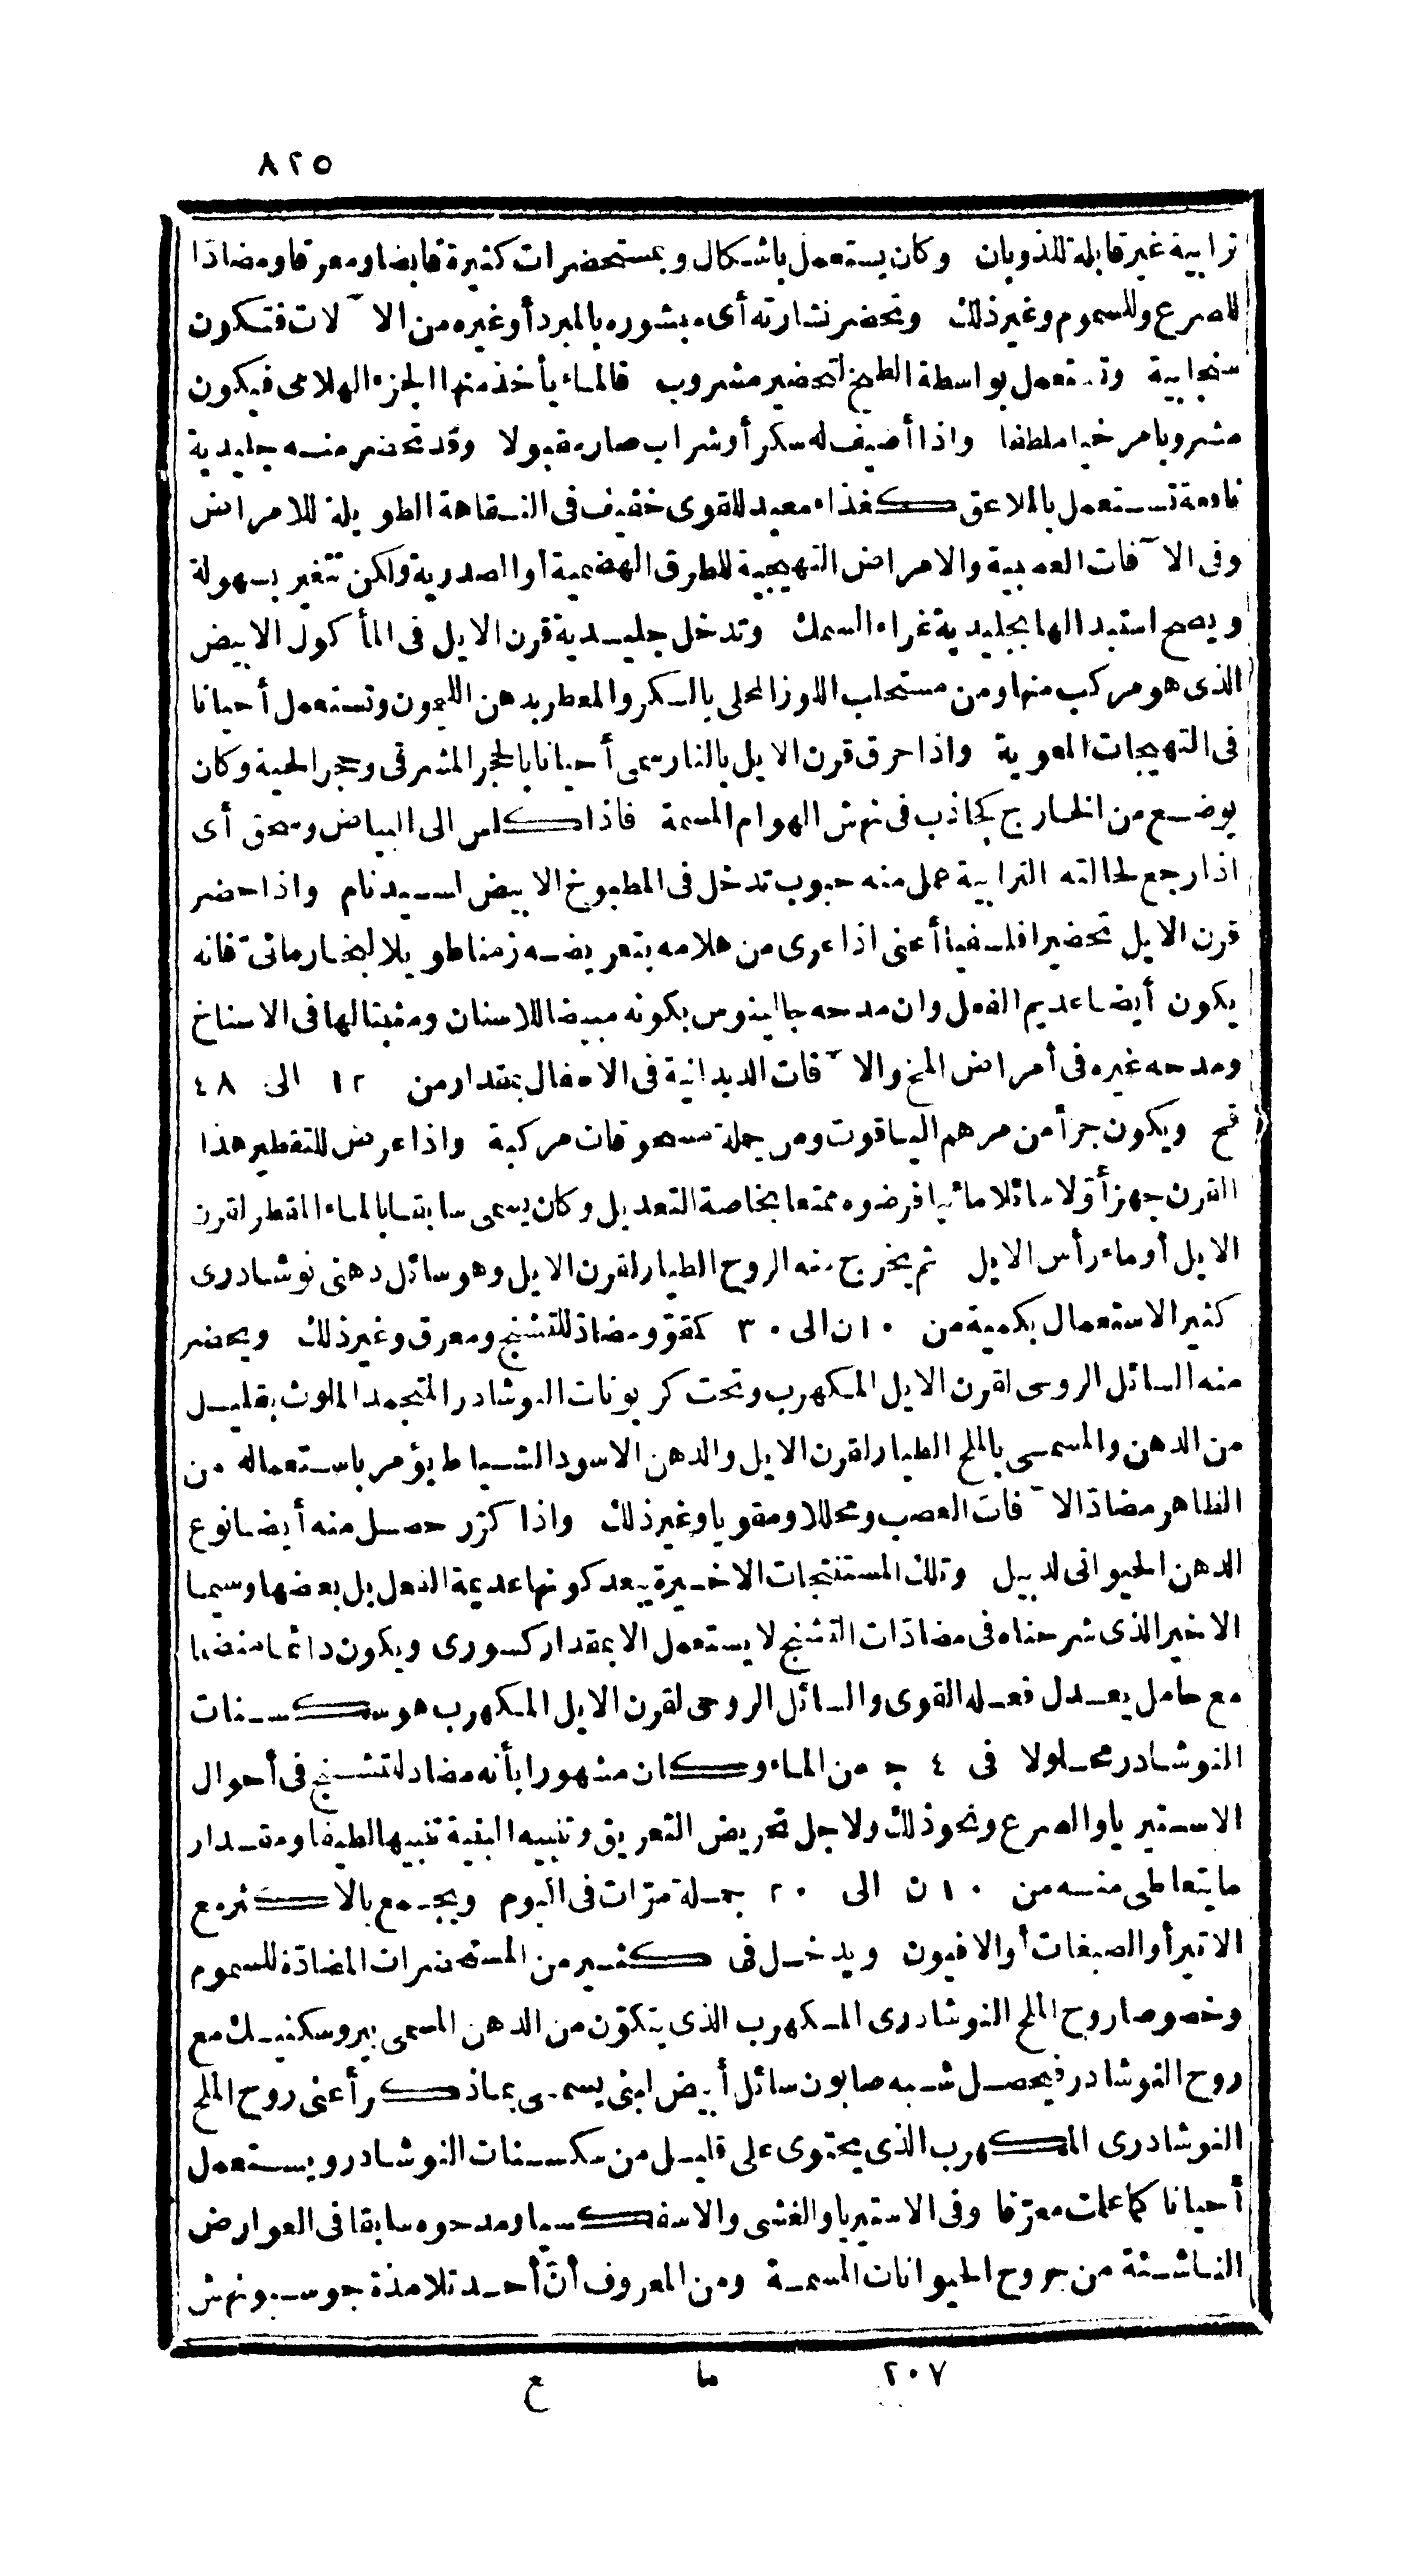 ٨٢٥
ترابية غير قابلة للذوبان وكان يستعمل باشكال وبمستحضرات كثيرة قابضا ومعرقا ومضادّا
للصرع وللسموم وغير ذلك وتحضر نشارته أى مبشوره بالمبرد أو غيره من الآلات فتكون
سنجابية وتستعمل بواسطة الطبخ لتحضير مشروب فالماء يأخذ منها الجزء الهلامى فيكون
مشروبا مرخيا ملطفا واذا أضيف له سكر أو شراب صار مقبولا وقد تحضر منه جليدية
ناعمة تستعمل بالملاعق كغذاء معيد للقوى خفيف فى النقاهة الطويلة للامراض
وفى الآفات العصبية والامراض التهيجية للطرق الهضمية أو الصدرية ولكن تتغير بسهولة
ويصح استبدالها بجليدية غراء السمك وتدخل جليدية قرن الايل فى المأكول الابيض
الذى هو مركب منها ومن مستحلب اللوز المحلى بالسكر والمعطر بدهن الليمون وتستعمل أحيانا
فى التهيجات المعوية واذا حرق قرن الايل بالنار سمى أحيانا بالحجر المشرقى وحجر الحية وكان
يوضع من الخارج كجاذب فى نهش الهوام المسمة فاذا كلس الى البياض وسحق أى
اذا رجع لحالته الترابية عمل منه حبوب تدخل فى المطبوخ الابيض لسيدنام واذا حضر
قرن الايل تحضيرا فلسفيا أعنى اذا عرى من هلامه بتعريضه زمنا طويلا لبخار مائىّ فانه
يكون أيضا عديم الفعل وان مدحه جالينوس بكونه مبيضا للاسنان ومثبتا لها فى الاسناخ
ومدحه غيره فى أمراض المخ والآفات الديدانية فى الاطفال بمقدار من ١٢ الى ٤٨
قمح ويكون جزأ من مرهم الياقوت ومن جملة مسحوقات مركبة واذا عرض للتقطير هذا
القرن جهز أوّلا سائلا مائيا فرضوه ممتعا بخاصة التعديل وكان يسمى سابقا بالماء المقطر لقرن
الايل أو ماء رأس الايل ثم يخرج منه الروح الطيار لقرن الايل وهو سائل دهنى نوشادرى
كثير الاستعمال بكمية من ١٠ ن الى ٣٠ كمقوّ ومضادّ للتشنج ومعرق وغير ذلك ويحضر
منه السائل الروحى لقرن الايل المكهرب وتحت كربونات النوشادر المتجمد الملوث بقليل
من الدهن والمسمى بالملح الطيار لقرن الايل والدهن الاسود الشياط يؤمر باستعماله من
الظاهر مضادّ الآفات العصب ومحللا ومقويا وغير ذلك واذا كرّر حصل منه أيضا نوع
الدهن الحيوانى لديبل وتلك المستنتجات الاخيرة يبعد كونها عديمة الفعل بل بعضها وسيما
الاخير الذى شرحناه فى مضادّات التشنج لا يستعمل الا بمقدار كسورى ويكون دائما منضما
مع حامل يعدل فعله القوى والسائل الروحى لقرن الايل المكهرب هو سكسنات
النوشادر محلولا فى ٤ ج من الماء وكان مشهورا بأنه مضاد للتشنج فى أحوال
الاستيريا والصرع ونحو ذلك ولاجل تحريض التعريق وتنبيه البنية تنبيها لطيفا ومقدار
ما يتعاطى منه من ١٠ ن الى ٢٠ جملة مرّات فى اليوم ويجمع بالاكثر مع
الاتير أو الصبغات أو الافيون ويدخل فى كثير من المستحضرات المضادّة للسموم
وخصوصا روح الملح النوشادرى المكهرب الذى يتكوّن من الدهن المسمى بيروسكنيك مع
روح النوشادر فيحصل شبه صابون سائل أبيض لبنى يسمى بما ذكر أعنى روح الملح
النوشادرى المكهرب الذى يحتوى على قليل من سكسنات النوشادر ويستعمل
أحيانا كما علمت معرّقا وفى الاستيريا والغشى والاسفكسيا ومدحوه سابقا فى العوارض
الناشئة من جروح الحيوانات المسمة ومن المعروف أنّ أحد تلامذة جوسيو نهش
٢٠٧ ما ع